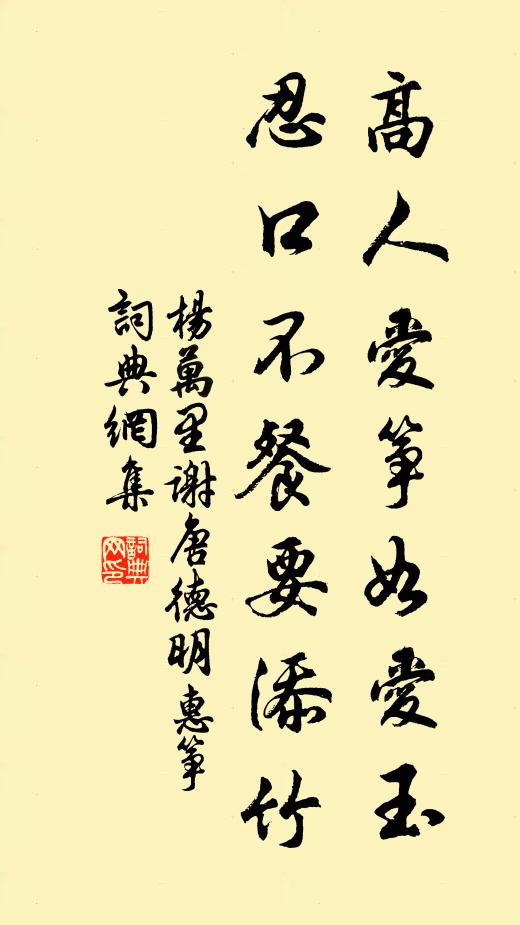 高人愛筝如愛玉
忍口不餐要添竹
楊萬里謝唐德明惠筝
詞典網集
詞典
网印